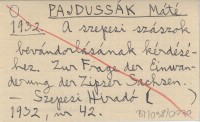 PAJDUSSÁK Máté
1932. A szepesi szászok
bevándorlásának kérdésé-
hez. Zur Frage der Einwan-
derung der Zipser Sachsen.
— Szepesi Híradó (     )
1932, nr 42.